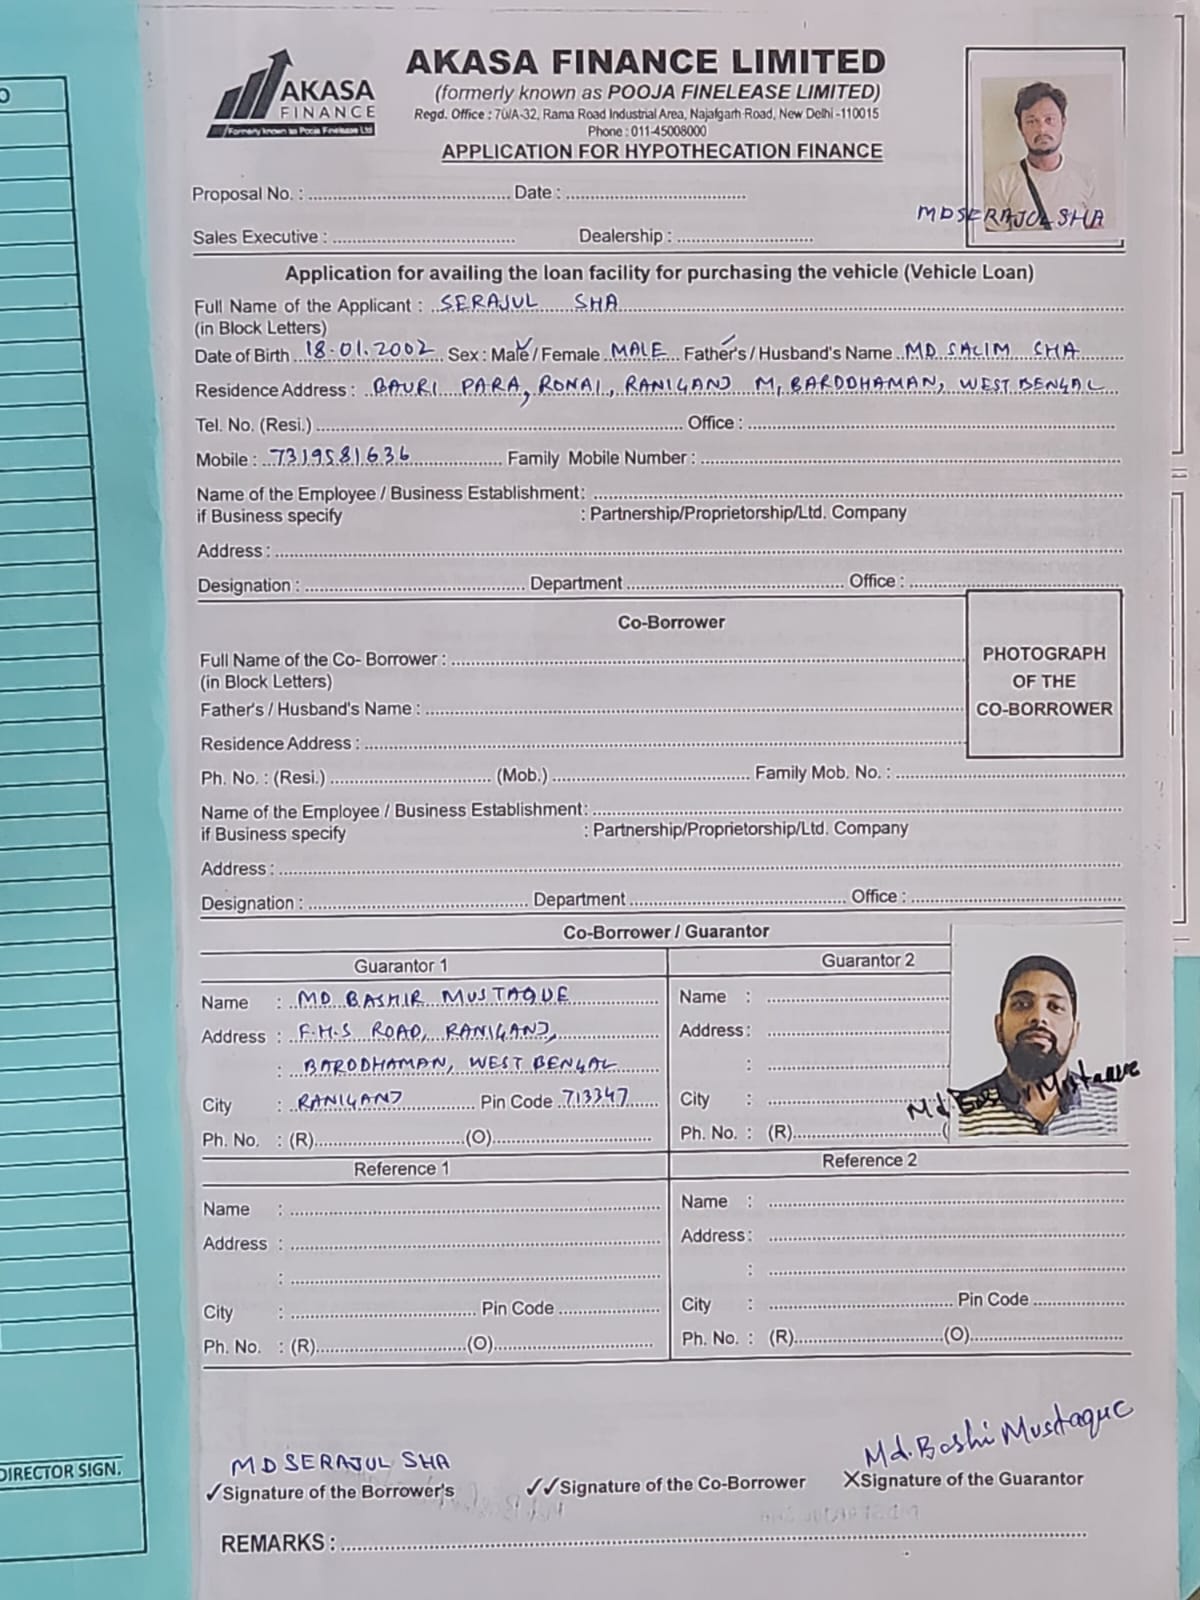 AKASA FINANCE LIMITED
AKASA
FINANCE
Formerly known as Pooja Finelease Ltd
(formerly known as POOJA FINELEASE LIMITED)
Regd. Office : 70/A-32, Rama Road Industrial Area, Najafgarh Road, New Delhi -110015
Phone : 011-45008000
APPLICATION FOR HYPOTHECATION FINANCE
Proposal No. : Date :
MD SERAJUL SHA
Sales Executive : Dealership :
Application for availing the loan facility for purchasing the vehicle (Vehicle Loan)
Full Name of the Applicant : SERAJUL SHA
(in Block Letters)
Date of Birth 18.01.2002 Sex : Male / Female MALE Father's / Husband's Name MD SALIM SHA
Residence Address : BAURI PARA, RONAI, RANIGANJ M, BARDDHAMAN, WEST BENGAL
Tel. No. (Resi.) Office :
Mobile : 7319581636 Family Mobile Number :
Name of the Employee / Business Establishment:
if Business specify : Partnership/Proprietorship/Ltd. Company
Address :
Designation : Department Office :
Co-Borrower
PHOTOGRAPH
OF THE
CO-BORROWER
Full Name of the Co- Borrower :
(in Block Letters)
Father's / Husband's Name :
Residence Address :
Ph. No. : (Resi.) (Mob.) Family Mob. No. :
Name of the Employee / Business Establishment:
if Business specify : Partnership/Proprietorship/Ltd. Company
Address :
Designation : Department Office :
Co-Borrower / Guarantor
Guarantor 1 Guarantor 2
Name : MD BASHIR MUSTAQUE Name :
Address : F.H.S ROAD, RANIGANJ, Address :
: BARDDHAMAN, WEST BENGAL :
City : RANIGANJ Pin Code 713347 City :
Ph. No. : (R) (O) Ph. No. : (R) (
Reference 1 Reference 2
Name : Name :
Address : Address:
: :
City : Pin Code City : Pin Code
Ph. No. : (R) (O) Ph. No. : (R) (O)
MD SERAJUL SHA Md. Boshi Mustaque
✓Signature of the Borrower's ✓✓Signature of the Co-Borrower XSignature of the Guarantor
REMARKS :
DIRECTOR SIGN.